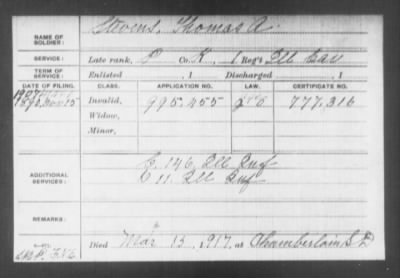 NAME OF SOLDIER: Stevens, Thomas A.
SERVICE: Late rank, P Co. K, 1 Reg't Ill Cav
TERM OF SERVICE: Enlisted , 1 Discharged , 1
DATE OF FILING. CLASS. APPLICATION NO. LAW. CERTIFICATE NO.
1890, Nov 15 Invalid, 995.455 777.316
Widow,
Minor,
ADDITIONAL SERVICES: C. 146, Ill Inf
C 11. Ill Inf
REMARKS:
Died Mar 13, 1917, at Chamberlain S D